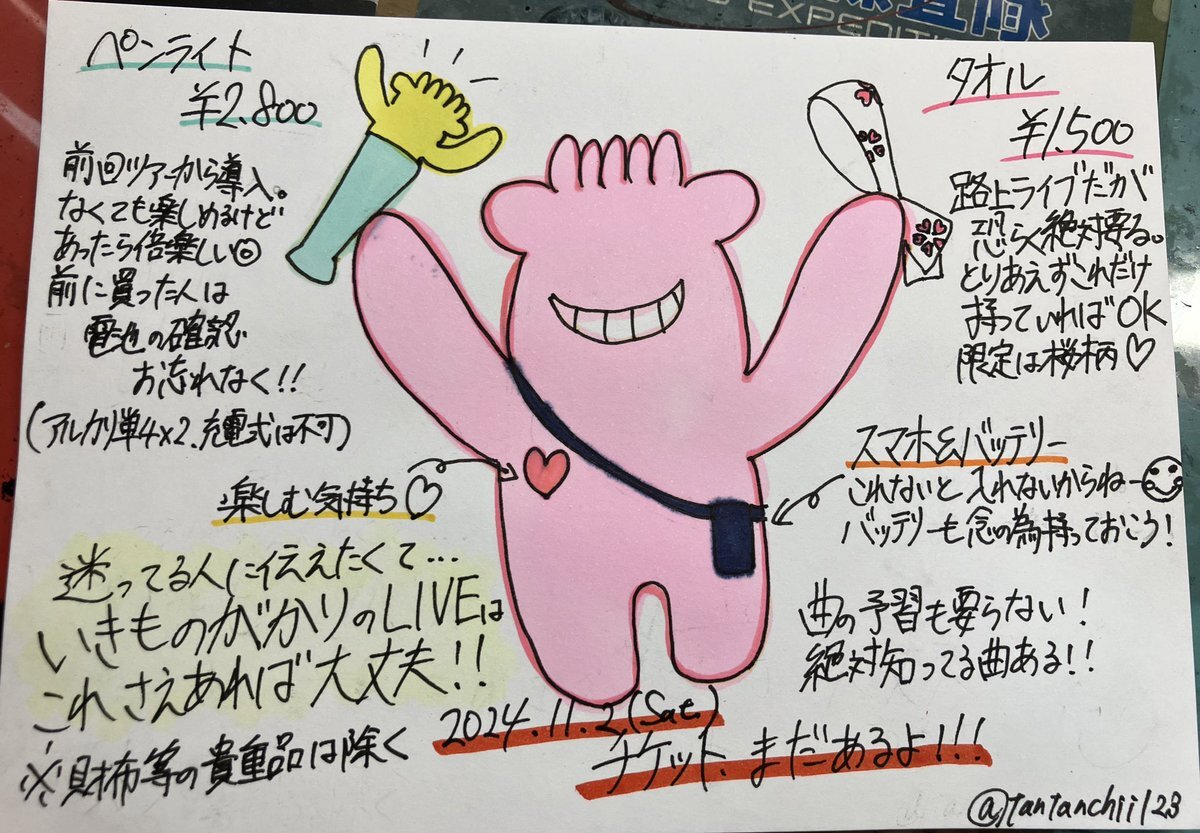 ペンライト
¥2.800
前回ツアーから導入。
なくても楽しめるけど
あったら倍楽しい
前に買った人は
電池の確認
お忘れなく!!
(アルカリ単4×2、充電式は不可)
タオル
¥1.500
路上ライブだが
恐らく絶対要る。
とりあえずこれだけ
持っていればOK
限定は桜柄♡
スマホ&バッテリー
これないと入れないからねー
バッテリーも念の為持っておこう!
楽しむ気持ち♡
迷ってる人に伝えたくて…
いきものがかりのLIVEは
これさえあれば大丈夫!!
※財布等の貴重品は除く
曲の予習も要らない!
絶対知ってる曲ある!!
2024.11.2(Sat.)
チケット、まだあるよ!!!
@tantanchii123
EXPEDITION